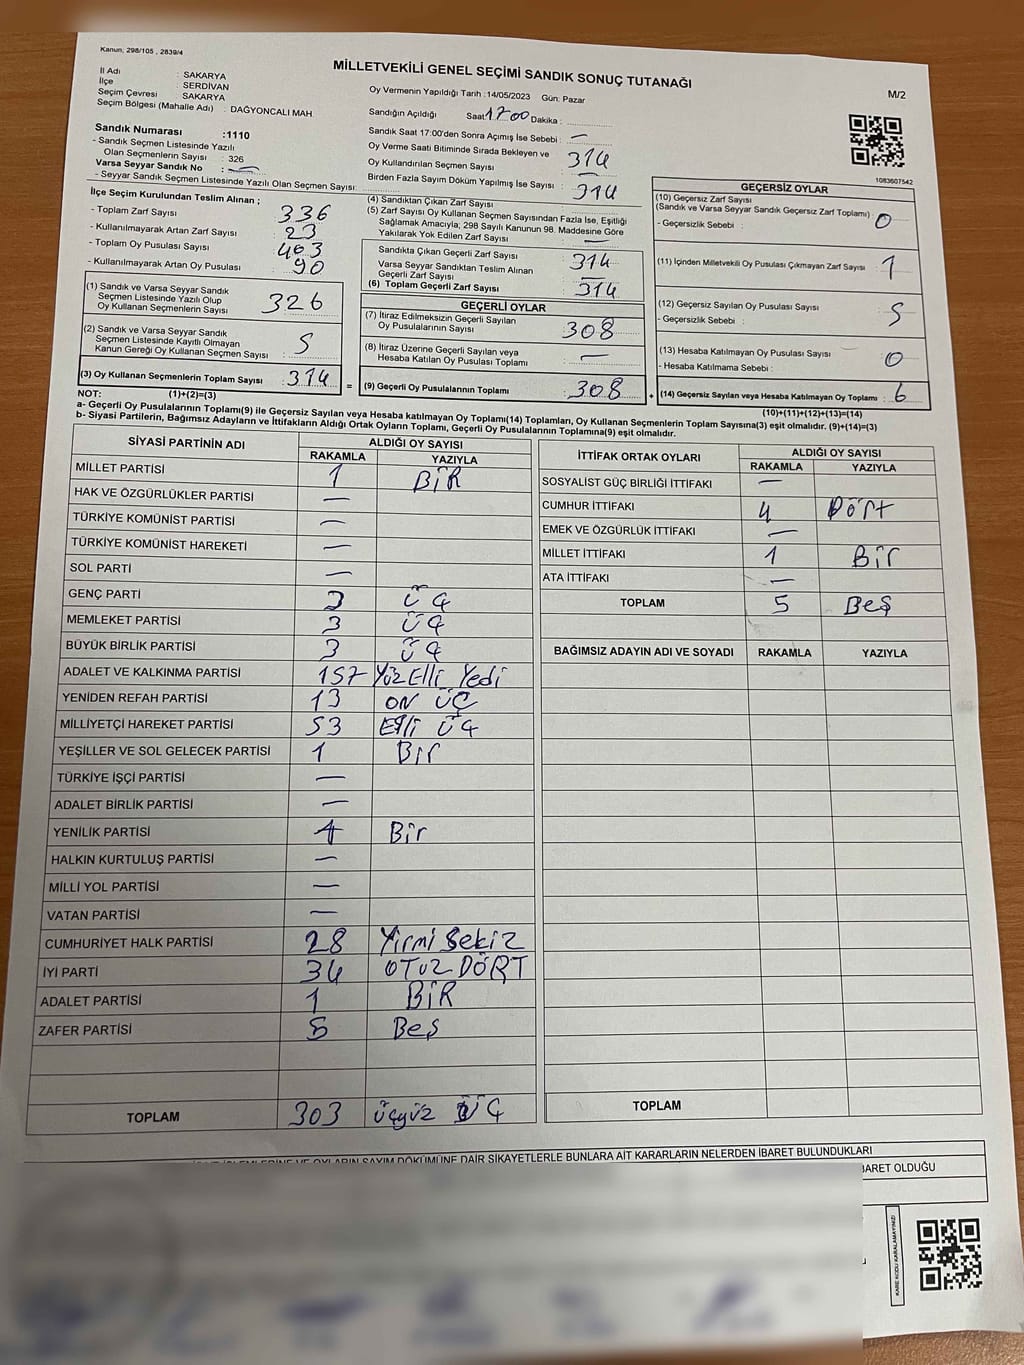 Kanun; 298/105 , 2839/4
MİLLETVEKİLİ GENEL SEÇİMİ SANDIK SONUÇ TUTANAĞI
M/2
İl Adı : SAKARYA
İlçe : SERDİVAN
Seçim Çevresi : SAKARYA
Seçim Bölgesi (Mahalle Adı) : DAĞYONCALI MAH
Sandık Numarası :1110
- Sandık Seçmen Listesinde Yazılı
Olan Seçmenlerin Sayısı : 326
Varsa Seyyar Sandık No : —
- Seyyar Sandık Seçmen Listesinde Yazılı Olan Seçmen Sayısı:
Oy Vermenin Yapıldığı Tarih :14/05/2023 Gün: Pazar
Sandığın Açıldığı Saat 1700 Dakika :
Sandık Saat 17:00'den Sonra Açımış İse Sebebi : —
Oy Verme Saati Bitiminde Sırada Bekleyen ve
Oy Kullandırılan Seçmen Sayısı : 314
Birden Fazla Sayım Döküm Yapılmış İse Sayısı : 314
1083607542
İlçe Seçim Kurulundan Teslim Alınan ;
- Toplam Zarf Sayısı : 336
- Kullanılmayarak Artan Zarf Sayısı : 23
- Toplam Oy Pusulası Sayısı : 403
- Kullanılmayarak Artan Oy Pusulası : 90
(1) Sandık ve Varsa Seyyar Sandık
Seçmen Listesinde Yazılı Olup
Oy Kullanan Seçmenlerin Sayısı : 326
(2) Sandık ve Varsa Seyyar Sandık
Seçmen Listesinde Kayıtlı Olmayan
Kanun Gereği Oy Kullanan Seçmen Sayısı : 5
(3) Oy Kullanan Seçmenlerin Toplam Sayısı : 314 =
(4) Sandıktan Çıkan Zarf Sayısı :
(5) Zarf Sayısı Oy Kullanan Seçmen Sayısından Fazla İse, Eşitliği
Sağlamak Amacıyla; 298 Sayılı Kanunun 98. Maddesine Göre
Yakılarak Yok Edilen Zarf Sayısı : —
Sandıkta Çıkan Geçerli Zarf Sayısı : 314
Varsa Seyyar Sandıktan Teslim Alınan
Geçerli Zarf Sayısı : —
(6) Toplam Geçerli Zarf Sayısı : 314
GEÇERLİ OYLAR
(7) İtiraz Edilmeksizin Geçerli Sayılan
Oy Pusulalarının Sayısı : 308
(8) İtiraz Üzerine Geçerli Sayılan veya
Hesaba Katılan Oy Pusulası Toplamı : —
(9) Geçerli Oy Pusulalarının Toplamı : 308 +
GEÇERSİZ OYLAR
(10) Geçersiz Zarf Sayısı
(Sandık ve Varsa Seyyar Sandık Geçersiz Zarf Toplamı) : 0
- Geçersizlik Sebebi :
(11) İçinden Milletvekili Oy Pusulası Çıkmayan Zarf Sayısı : 1
(12) Geçersiz Sayılan Oy Pusulası Sayısı : 5
- Geçersizlik Sebebi :
(13) Hesaba Katılmayan Oy Pusulası Sayısı : 0
- Hesaba Katılmama Sebebi :
(14) Geçersiz Sayılan veya Hesaba Katılmayan Oy Toplamı : 6
NOT: (1)+(2)=(3) (10)+(11)+(12)+(13)=(14)
a- Geçerli Oy Pusulalarının Toplamı(9) ile Geçersiz Sayılan veya Hesaba katılmayan Oy Toplamı(14) Toplamları, Oy Kullanan Seçmenlerin Toplam Sayısına(3) eşit olmalıdır. (9)+(14)=(3)
b- Siyasi Partilerin, Bağımsız Adayların ve İttifakların Aldığı Ortak Oyların Toplamı, Geçerli Oy Pusulalarının Toplamına(9) eşit olmalıdır.
SİYASİ PARTİNİN ADI ALDIĞI OY SAYISI
RAKAMLA YAZIYLA
MİLLET PARTİSİ 1 BİR
HAK VE ÖZGÜRLÜKLER PARTİSİ —
TÜRKİYE KOMÜNİST PARTİSİ —
TÜRKİYE KOMÜNİST HAREKETİ —
SOL PARTİ —
GENÇ PARTİ 3 ÜÇ
MEMLEKET PARTİSİ 3 ÜÇ
BÜYÜK BİRLİK PARTİSİ 3 ÜÇ
ADALET VE KALKINMA PARTİSİ 157 Yüz Elli Yedi
YENİDEN REFAH PARTİSİ 13 ON ÜÇ
MİLLİYETÇİ HAREKET PARTİSİ 53 Elli ÜÇ
YEŞİLLER VE SOL GELECEK PARTİSİ 1 Bir
TÜRKİYE İŞÇİ PARTİSİ —
ADALET BİRLİK PARTİSİ —
YENİLİK PARTİSİ 1 Bir
HALKIN KURTULUŞ PARTİSİ —
MİLLİ YOL PARTİSİ —
VATAN PARTİSİ —
CUMHURİYET HALK PARTİSİ 28 Yirmi Sekiz
İYİ PARTİ 34 OTUZ DÖRT
ADALET PARTİSİ 1 BİR
ZAFER PARTİSİ 5 Beş
TOPLAM 303 Üçyüz ÜÇ
İTTİFAK ORTAK OYLARI ALDIĞI OY SAYISI
RAKAMLA YAZIYLA
SOSYALİST GÜÇ BİRLİĞİ İTTİFAKI —
CUMHUR İTTİFAKI 4 Dört
EMEK VE ÖZGÜRLÜK İTTİFAKI —
MİLLET İTTİFAKI 1 Bir
ATA İTTİFAKI —
TOPLAM 5 Beş
BAĞIMSIZ ADAYIN ADI VE SOYADI RAKAMLA YAZIYLA
TOPLAM
İŞLEMLERİNE VE OYLARIN SAYIM DÖKÜMÜNE DAİR ŞİKAYETLERLE BUNLARA AİT KARARLARIN NELERDEN İBARET BULUNDUKLARI
İBARET OLDUĞU
KARE KODU KARALAMAYINIZ!